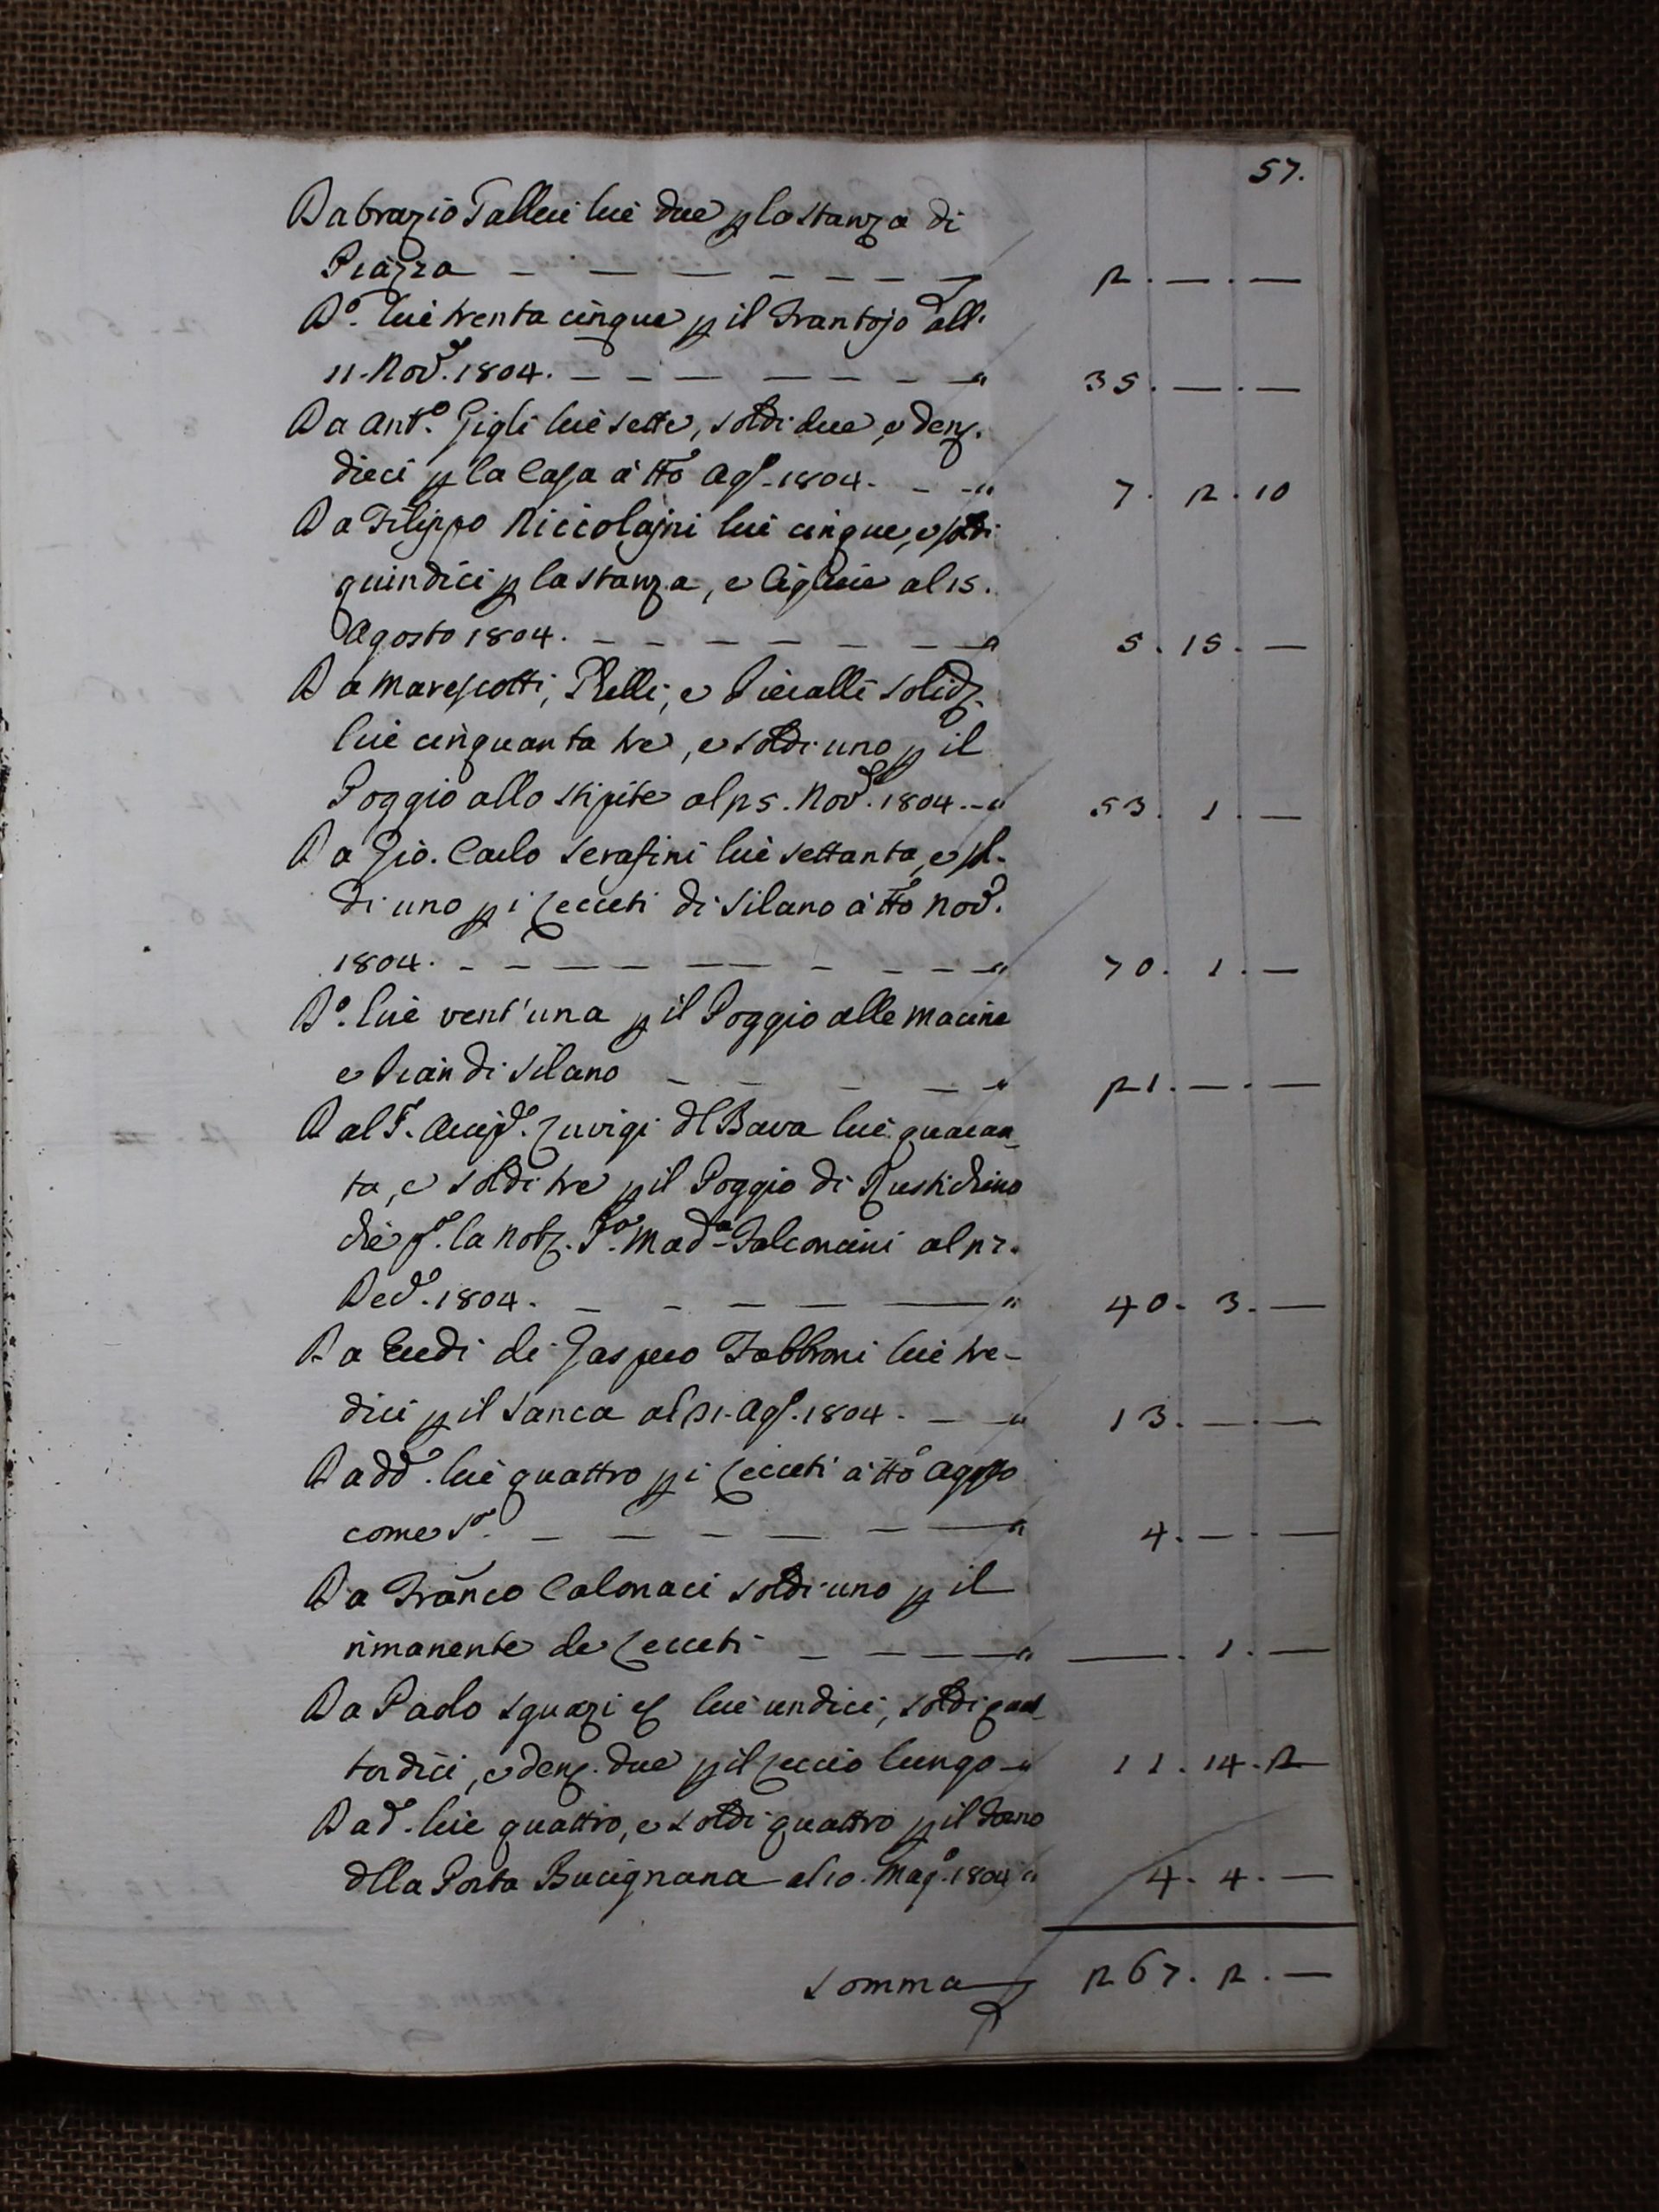 57.
Da Grazio Tallui lire due p la stanza di
Piazza — — — — — — — 2 . — . —
Do. lire trenta cinque p il Frantojo all'
11. Nov.e 1804. — — — — — — — " 35 . — . —
Da Anto. Gigli lire sette, soldi due, e denj.
dieci p la Casa a tto Ago. 1804. — — " 7 . 2 . 10
Da Filippo Niccolajni lire cinque, e soldi
quindici p la stanza, e al 15.
Agosto 1804. — — — — — — " 5 . 15 . —
Da Marescotti, Relli, e Piccalli solid.
lire cinquanta tre, e soldi uno p il
Poggio allo stipite al 25. Nov.e 1804. — " 53 . 1 . —
Da Gio. Carlo Serafini lire settanta, e sol-
di uno p i Lecceti di Silano a tto Nov.e
1804. — — — — — — — — — " 70 . 1 . —
Do. lire vent'una p il Poggio alle Macine
e Pian di Silano — — — — — " 21 . — . —
Dal S. Luvigi dl Bava lire quaran-
ta, e soldi tre p il Poggio di Rustichino
che p. la Nob. Sa. Mada. Falconcini al 27.
Dece. 1804. — — — — — " 40 . 3 . —
Da Eredi di Gaspero Fabbroni lire tre-
dici p il Sanca al 21. Ago. 1804. — — " 13 . — . —
Da dd. lire quattro p i Lecceti a tto Agosto
come sa. — — — — — — " 4 . — . —
Da Franco Calonaci soldi uno p il
rimanente de Lecceti — — — — " — . 1 . —
Da Paolo Sguazi lire undici, soldi quat-
tordici, e denj. due p il Leccio lungo — " 11 . 14 . 2
Da d. lire quattro, e soldi quattro p il
dlla Porta Bucignana al 10. Mago. 1804 " 4 . 4 . —
Somma 267 . 2 . —